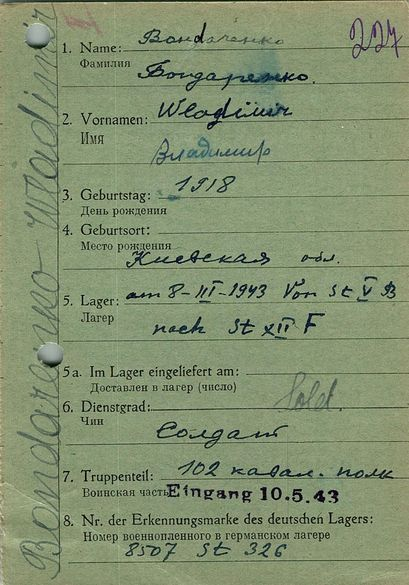 227
1. Name: Bondarenko
Фамилия
Бондаренко.
2. Vornamen: Wladimir
Имя
Владимир
3. Geburtstag: 1918
День рождения
4. Geburtsort:
Место рождения
Киевская обл.
5. Lager: am 8-III-1943 Von St V B
Лагерь
nach St XII F
5a. Im Lager eingeliefert am:
Доставлен в лагерь (число)
6. Dienstgrad: Sold.
Чин
Солдат
7. Truppenteil: 102 кавал. полк
Воинская часть Eingang 10.5.43
8. Nr. der Erkennungsmarke des deutschen Lagers:
Номер военнопленного в германском лагере
8507 St 326
Bondarenko Wladimir